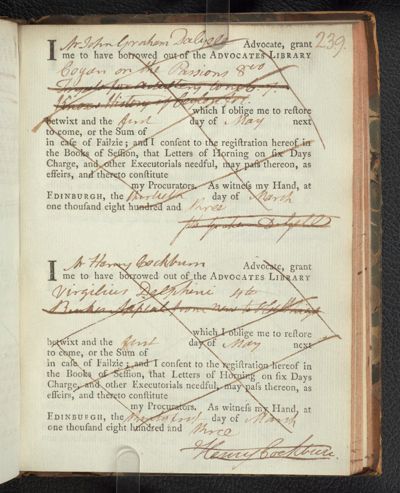 239.
I Mr John Graham Dalyell Advocate, grant
me to have borrowed out of the ADVOCATES LIBRARY
Cogan on the Passions 8vo
which I oblige me to restore
betwixt and the first day of May next
to come, or the Sum of
in case of Failzie; and I consent to the registration hereof in
the Books of Session, that Letters of Horning on six Days
Charge, and other Executorials needful, may pass thereon, as
effeirs, and thereto constitute
my Procurators. As witness my Hand, at
EDINBURGH, the day of March
one thousand eight hundred and three
I Mr Henry Cockburn Advocate, grant
me to have borrowed out of the ADVOCATES LIBRARY
Virgilius Delphini 4to
which I oblige me to restore
betwixt and the first day of May next
to come, or the Sum of
in case of Failzie; and I consent to the registration hereof in
the Books of Session, that Letters of Horning on six Days
Charge, and other Executorials needful, may pass thereon, as
effeirs, and thereto constitute
my Procurators. As witness my Hand, at
EDINBURGH, the day of March
one thousand eight hundred and three
Henry Cockburn.